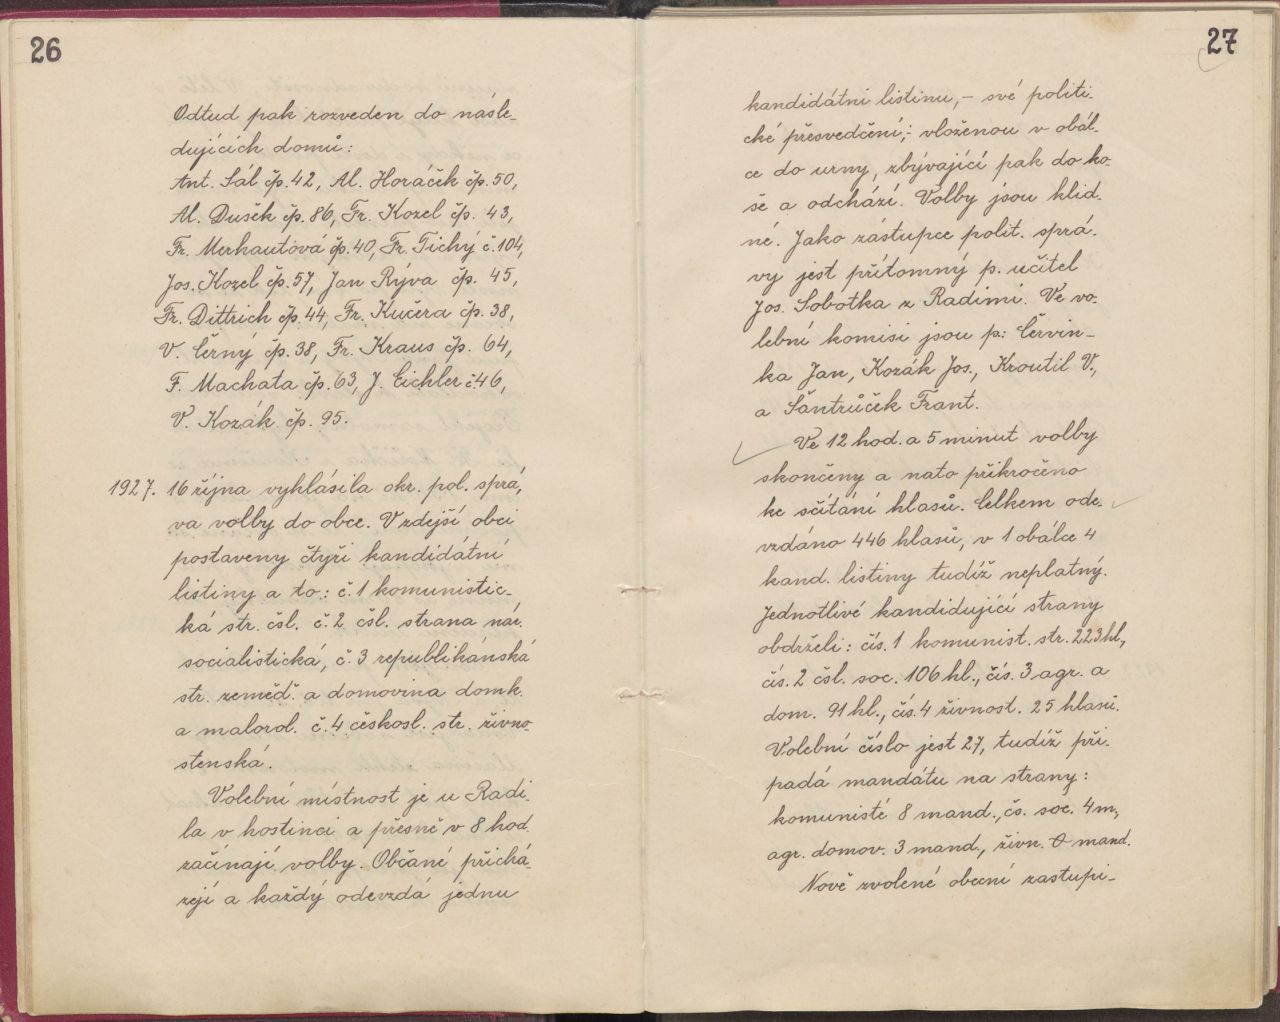 26
Odtud pak rozveden do násle-
dujících domů:
Ant. Sál čp. 42, Al. Horáček čp. 50,
Al. Dušek čp. 86, Fr. Kozel čp. 43,
Fr. Merhautová čp. 40, Fr. Tichý č. 104,
Jos. Kozel čp. 57, Jan Rýva čp. 45,
Fr. Dittrich čp. 44, Fr. Kučera čp. 38,
V. Černý čp. 38, Fr. Kraus čp. 64,
F. Machata čp. 63, J. Eichler č 46,
V. Kozák čp. 95.
1927. 16 října vyhlásila okr. pol. sprá-
va volby do obce. V zdejší obci
postaveny čtyři kandidátní
listiny a to: č. 1 komunistic-
ká str. čsl. č. 2 čsl. strana nár.
socialistická, č. 3 republikánská
str. zeměď. a domovina domk.
a malorol. č. 4 českosl. str. živno-
stenská.
Volební místnost je u Radi-
la v hostinci a přesně v 8 hod.
začínají volby. Občané přichá-
zejí a každý odevzdá jednu
27
kandidátní listinu, – své politi-
cké přesvedčení, – vloženou v obál-
ce do urny, zbývající pak do ko-
še a odchází. Volby jsou klid-
né. Jako zástupce polit. sprá-
vy jest přítomný p. učitel
Jos. Sobotka z Radimi. Ve vo-
lební komisi jsou p.: Červin-
ka Jan, Kozák Jos., Kroutil V.,
a Šantrůček Frant.
Ve 12 hod. a 5 minut volby
skončeny a nato přikročeno
ke sčítání hlasů. Celkem ode-
vzdáno 446 hlasů, v 1 obálce 4
kand. listiny tudíž neplatný.
Jednotlivé kandidující strany
obdrželi: čís. 1 komunist. str. 223 hl.,
čís. 2 čsl. soc. 106 hl., čís. 3 agr. a
dom. 91 hl., čís. 4 živnost. 25 hlasů.
Volební číslo jest 27, tudíž při-
padá mandátu na strany:
komunisté 8 mand., čs. soc. 4 m.,
agr. domov. 3 mand., živn. 0 mand.
Nově zvolené obecní zastupi-